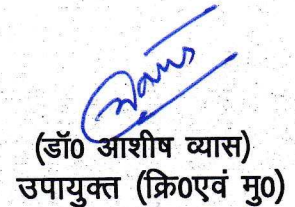 (डॉ0 आशीष व्यास)
उपायुक्त (क्रि0एवं मु0)